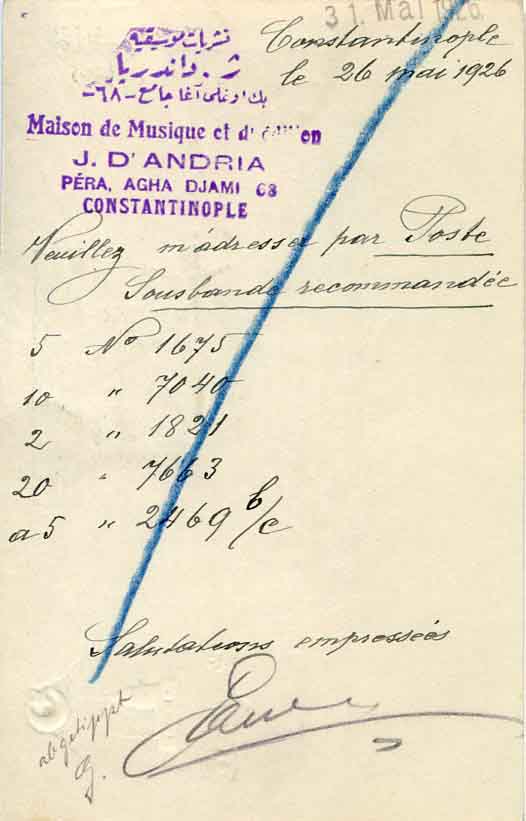 31. Mai 1926
Constantinople
le 26 mai 1926
نشریات موسیقیه
ژ. داندریا
بك اوغلی آغا جامع -٦٨-
Maison de Musique et d'
J. D'ANDRIA
PÉRA, AGHA DJAMI 68
CONSTANTINOPLE
Veuillez m'adresser par Poste
Sousbande recommandée
5 No 1675
10 " 7040
2 " 1821
20 " 7663
a 5 " 2469 b/c
Salutations empressées
abgetippt